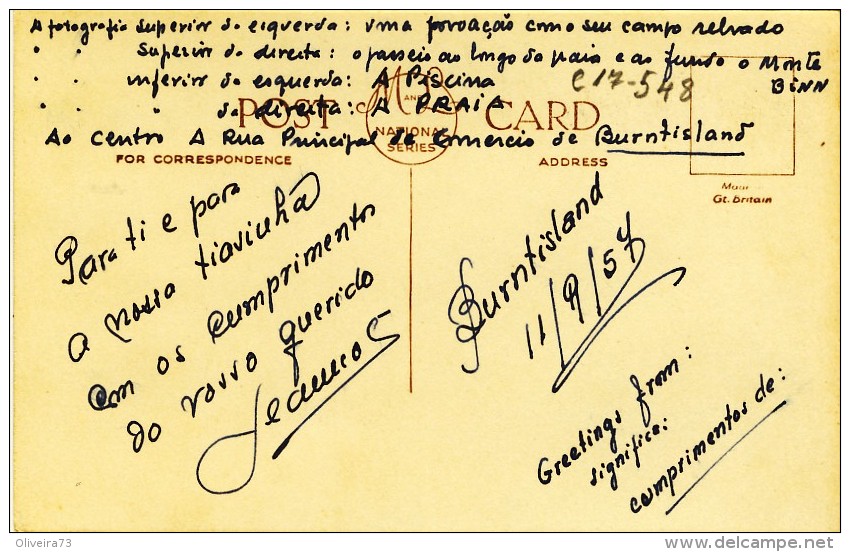 A fotografia superior da esquerda: uma povoação com o seu campo relvado
" " Superior da direita: o passeio ao longo da praia e ao fundo o Monte Binn
" " inferior da esquerda: A Piscina
" " da direita: A PRAIA
Ao Centro A Rua Principal de Comercio de Burntisland
C17-548
POST CARD
M AND L
NATIONAL
SERIES
FOR CORRESPONDENCE
ADDRESS
Gt. Britain
Para ti e para
a nossa tiavinha
com os cumprimentos
do vosso querido
Burntisland
11/9/57
Greetings from:
significa:
cumprimentos de:
Oliveira73
www.delcampe.net